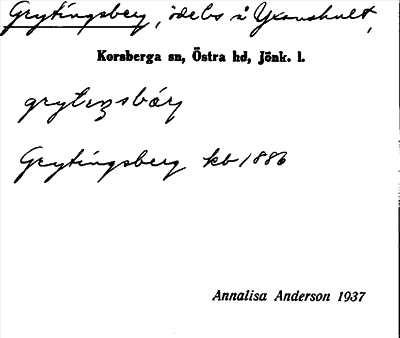 Grytingsberg, ödebs i Yxanshult,
Korsberga sn, Östra hd, Jönk. l.
grytɩŋsbärj
Grytingsberg kb 1886
Annalisa Anderson 1937